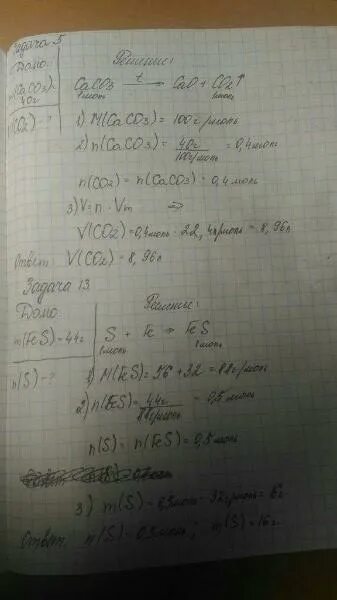 Задача 5
Дано: Решение:
m(CaCO3)= 40г
CaCO3 t→ CaO + CO2↑
1моль 1моль
V(CO2) - ?
1) M(CaCO3) = 100г/моль
2) n(CaCO3) = 40г / 100г/моль = 0,4моль
n(CO2) = n(CaCO3) = 0,4моль
3) V = n · Vm ⇒
V(CO2) = 0,4моль · 22,4л/моль = 8,96л
Ответ V(CO2) = 8,96л
Задача 13
Дано Решение:
m(FeS) = 44г
S + Fe ⇒ FeS
1моль 1моль
n(S) - ?
1) M(FeS) = 56 + 32 = 88г/моль
2) n(FeS) = 44г / 88г/моль = 0,5моль
n(S) = n(FeS) = 0,5моль
3) m(S) = 0,5моль · 32г/моль = 16г
Ответ n(S) = 0,5моль; m(S) = 16г